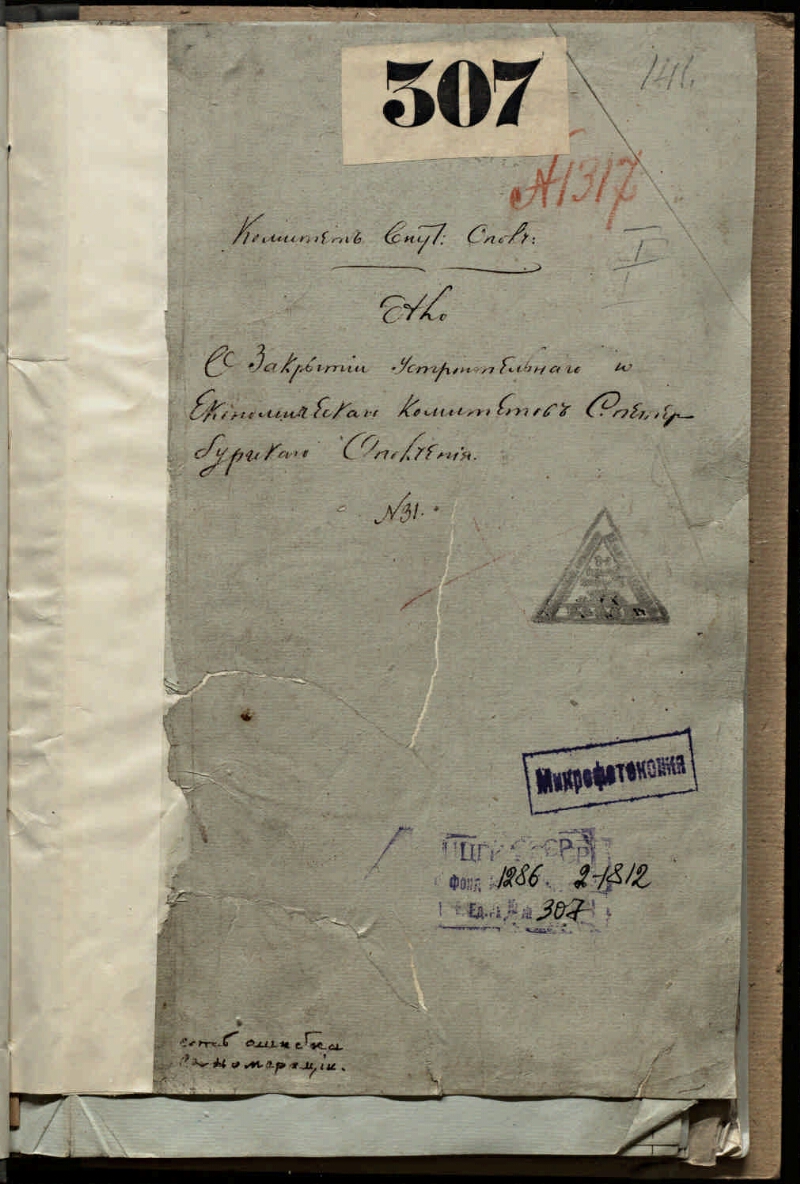 307
146
№1317
Комитетъ Внут: Ополч:
I
Дѣло
О Закрытіи Устроительнаго и
Економическаго Комитетовъ Спетер
бургскаго Ополченія.
№31.
Микрофотокопия
ЦГИА СССР
Фонд 1286. 2-1812
Ед. хр. № 307
есть ошибка
в нумерацiи.